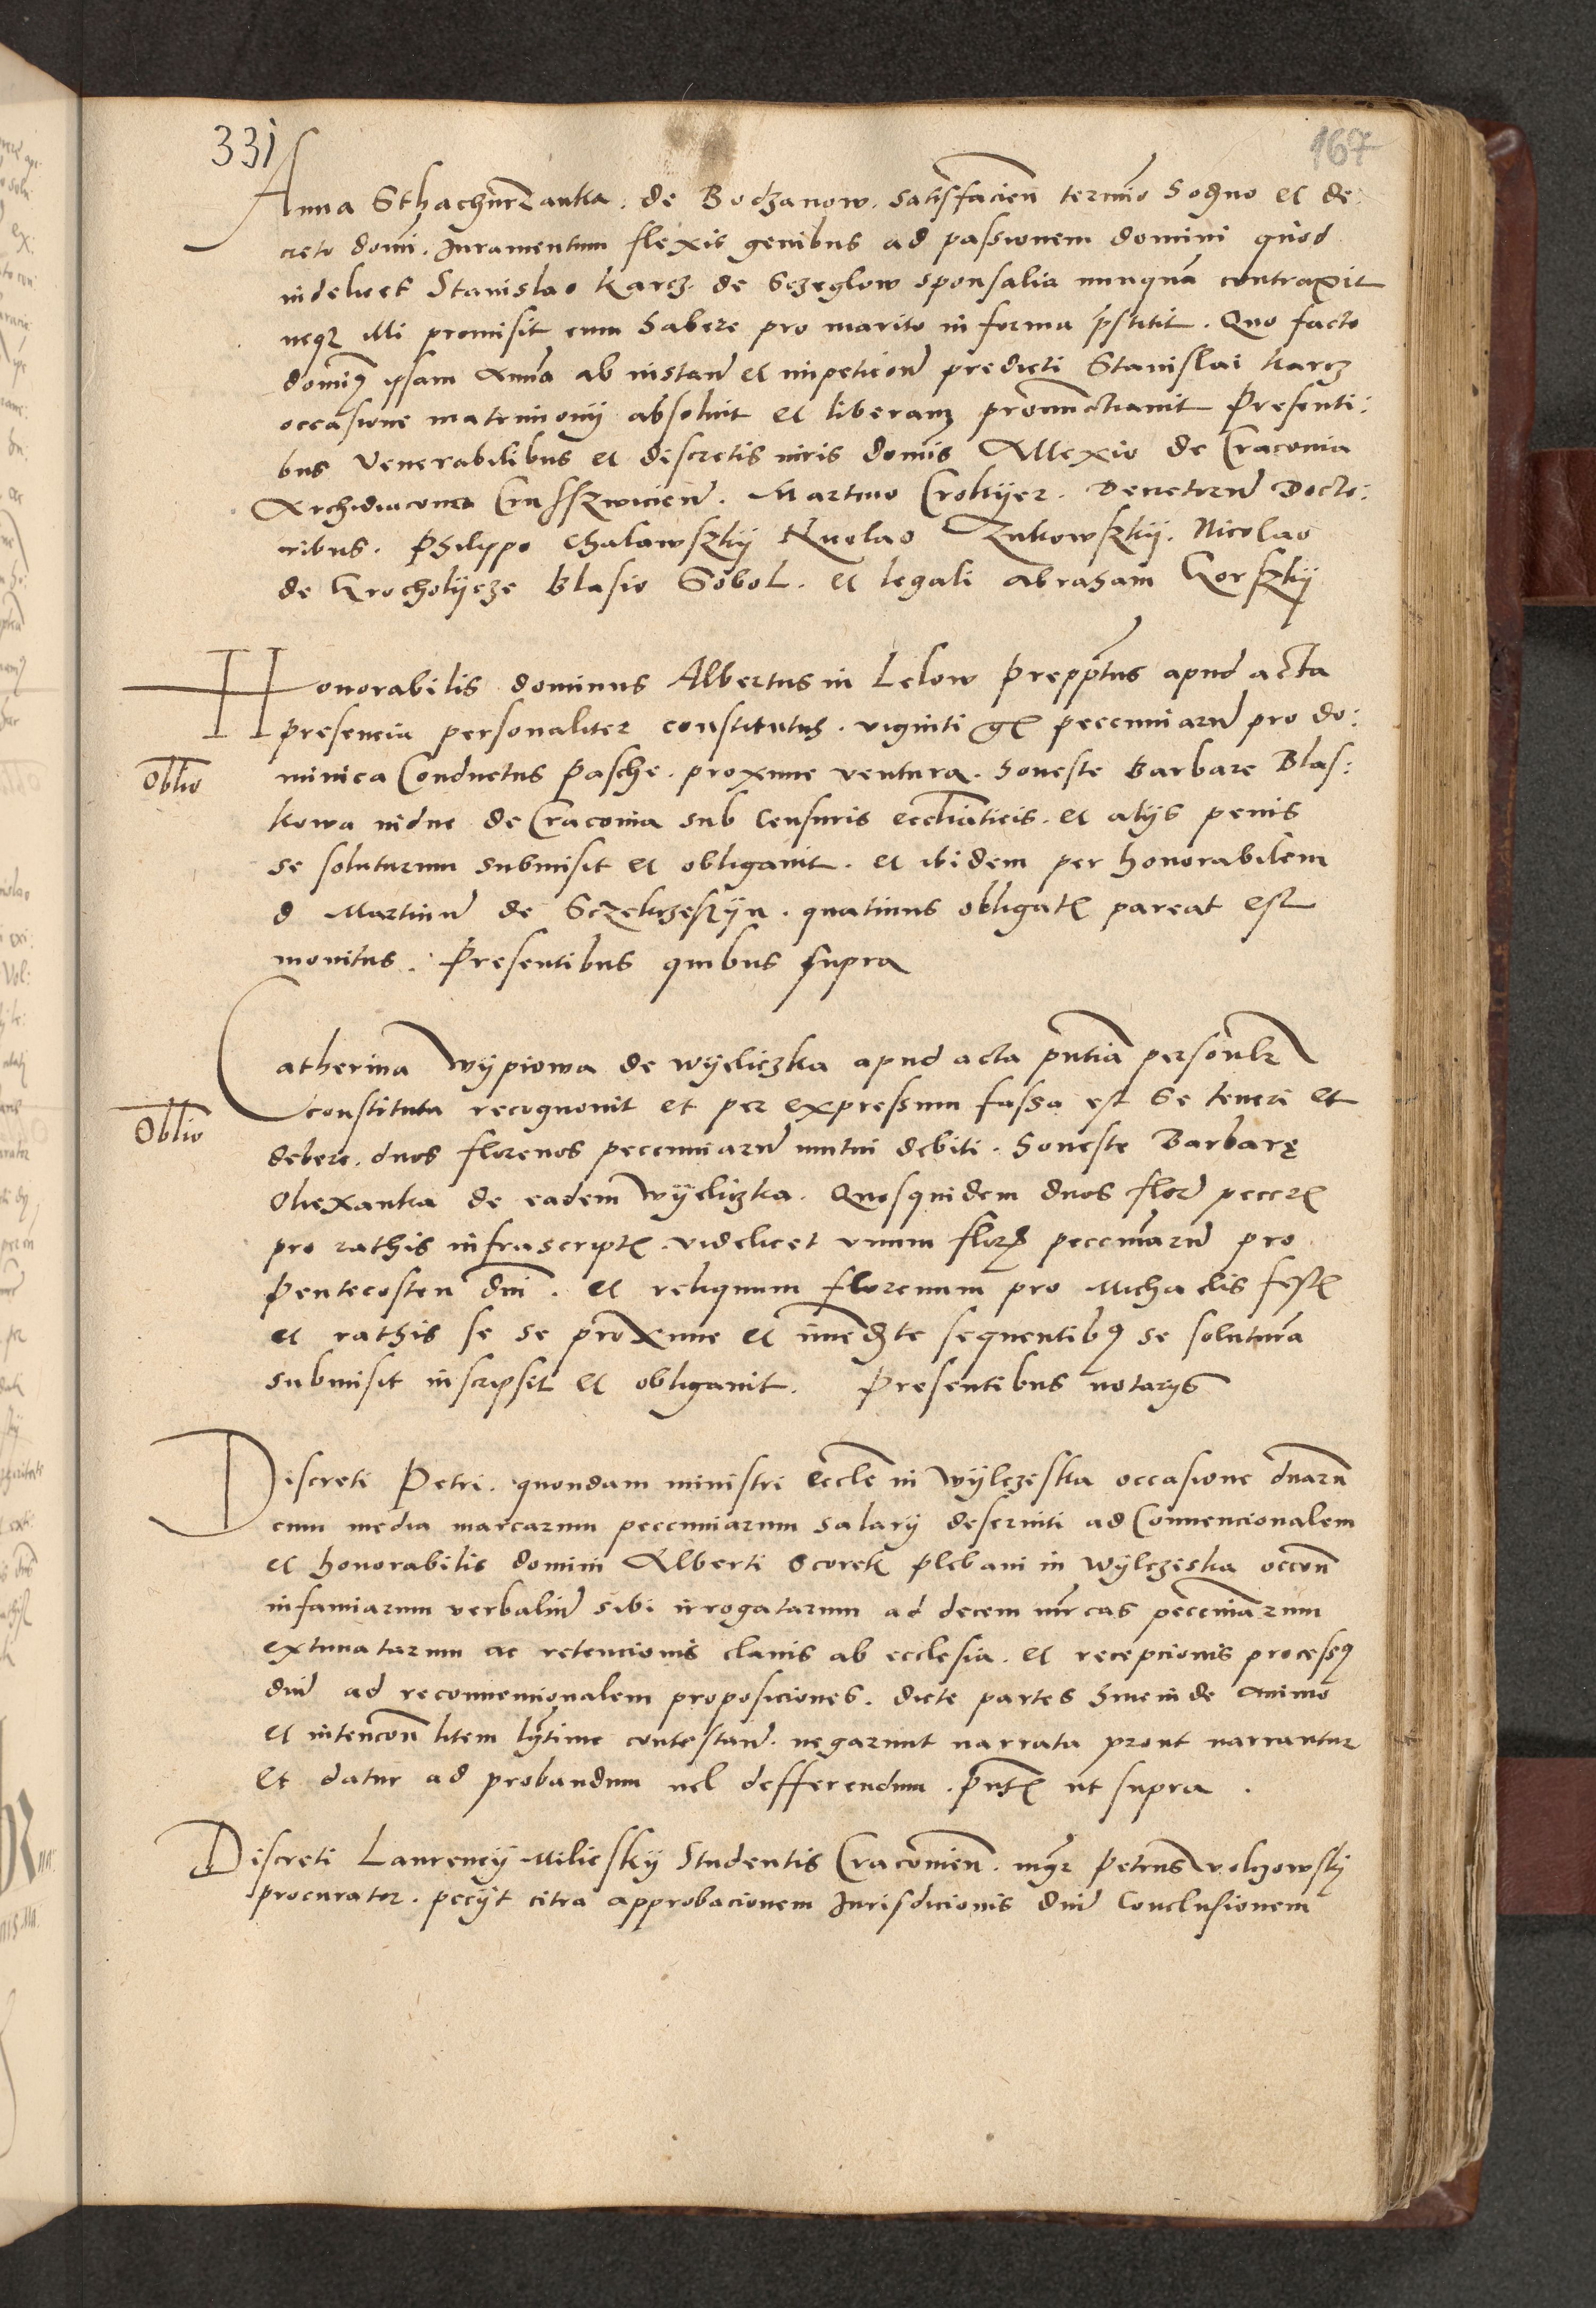 331
167
Anna Sthachurzanka. de Bodzanow. satisfacien termino hodierno et de:
creto domini. Juramentum flexis genibus ad passionem domini quod
videlicet Stanislao Karcz de Sczeglow sponsalia nunquam contraxit
neque illi promisit eum habere pro marito in forma prestitit. Quo facto
dominus ipsam Annam ab instan et impeticion predicti Stanislai Karcz
occasione matrimonii absolvit et liberam pronunctiavit Presenti:
bus Venerabilibus et discretis viris dominis Allexio de Cracovia
Archidiacono Crusszwicien. Martino Crokyer. Decretorum Docto:
ribus. Philippo Chalawszky Nicolao Zukowszky. Nicolao
de Krocholycze Blasio Sobol. et legali Abraham Gorszky
Honorabilis dominus Albertus in Lelow Prepptus apud acta
presencia personaliter constitutus. viginti gr pecuniarum pro do:
Oblio
minica Conductus Pasche. proxime ventura. honeste Barbare Blas:
kowa vidue de Cracovia sub Censuris ecclesiasticis. et aliis penis
se soluturum submisit et obligavit. et ibidem per honorabilem
d Martinum de . quatinus obligat pareat est
monitus. Presentibus quibus supra
Catherina Wypiowa de Wyeliczka apud acta pntia personlr
constituta recognovit et per expressum fassa est se teneri et
Oblio
debere. duos florenos pecuniarum mutui debiti. honeste Barbare
Olexanka de eadem Wyeliczka. Quosquidem duos flor pecun
pro rathis infrascript. videlicet unum flor pecuniarum pro
Pentecosten dni. et reliquum florenum pro Michaelis fest
et rathis se se proxime et immediate sequentibus se soluturam
submisit inscripsit et obligavit. Presentibus notariis
Discreti Petri. quondam ministri eccle in Wylczeska occasione duarum
cum media marcarum pecuniarum salarii deserviti ad Convencionalem
et honorabilis domini Alberti Scorek plebani in Wylczeska occon
infamiarum verbalium sibi irrogatarum ad decem mrcas pecuniarum
extimatarum ac retencionis clavis ab ecclesia. et recepcionis processus
dni ad reconvencionalem proposiciones. dicte partes hincinde animo
et intencon litem lgtime contestan. negarunt narrata prout narrantur
et datur ad probandum vel defferendum. pntb ut supra.
Discreti Laurencii Miliesky Studentis Cracovien. mgr Petrus Wolczowsky
procurator. peciit citra approbacionem Jurisdicionis dni Conclusionem